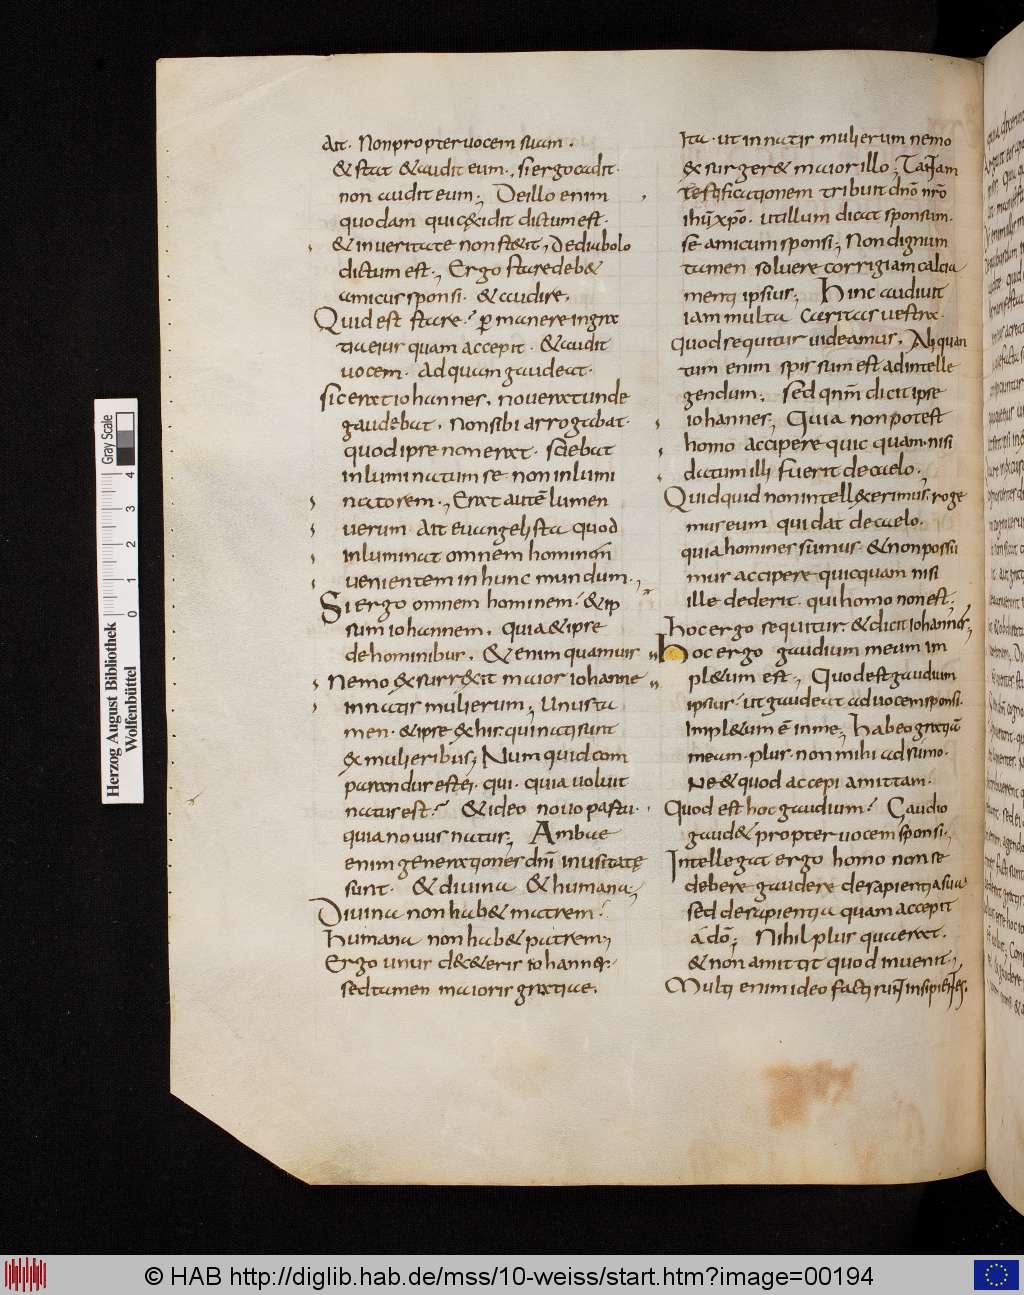 Ait. Non propter uocem suam.
& stat & audit eum., si ergo cadit.
non audit eum., De illo enim
quodam qui cecidit dictum est.
& in ueritate non st&it, De diabolo
dictum est., Ergo stare deb&
amicus sponsi. & audire,
Quid est stare? p manere in gra
tia eius quam accepit. & audit
uocem. ad quam gaudeat.
sic erat iohannes. nouerat unde
gaudebat. Non sibi arrogabat.
quod ipse non erat. sciebat
inluminatum se. non inlumi
natorem., Erat autē lumen
uerum. Ait euangelista quod
inluminat omnem hominem
uenientem in hunc mundum.,
Si ergo omnem hominem. & ip
sum iohannem. quia & ipse
de hominibus. & enim quamuis
Nemo exsurrexit maior iohanne
in natis mulierum, Unus ta
men. & ipse ex his. qui nati sunt
ex mulieribus, Numquid com
parandus est ei. qui. quia uoluit
natus est? & ideo nouo partu.
quia nouus natus, Ambae
enim generationes dnī inusitatę
sunt. & diuina & humana,
Diuina non hab& matrem.
humana non hab& patrem,
Ergo unus de ceteris iohannes.
sed tamen maioris gratiae.
Ita. ut in natis mulierum nemo
exsurger& maior illo, Tantam
testificationem tribuit dnō nrō
ihū xpō. ut illum dicat sponsum.
se amicum sponsi, Non dignum
tamen soluere corrigiam calcia
menti ipsius, Hinc audiuit
iam multa caritas uestra.
Quod sequitur uideamus, Aliquan
tum enim ad intelle
gendum, sed qnm dicit ipse
iohannes, Quia non potest
homo accipere quic quam. nisi
datum illi fuerit de caelo.
Quid quid non intellexerimus. roge
mus eum qui dat de caelo.
quia homines sumus. & non possu
mus accipere quicquam nisi
ille dederit. qui homo non est,
Hoc ergo sequitur. & dicit iohannes,
Hoc ergo gaudium meum im
pl&um est., Quod est gaudium
ipsius. ut gaudeat ad uocem sponsi.
impl&um ē in me, habeo gratiā
meam. plus. non mihi adsumo.
Ne & quod accepi amittam.
Quod est hoc gaudium? Gaudio
gaud& propter uocem sponsi.,
Intellegat ergo homo non se
debere gaudere de sapientia sua
sed de sapientia quam accepit
a dō, Nihil plus quaerat.
& non amittit quod inuenit.,
Multi enim ideo facti sunt insipientes.
Herzog August Bibliothek
Wolfenbüttel
Gray Scale
0 1 2 3 4
© HAB http://diglib.hab.de/mss/10-weiss/start.htm?image=00194